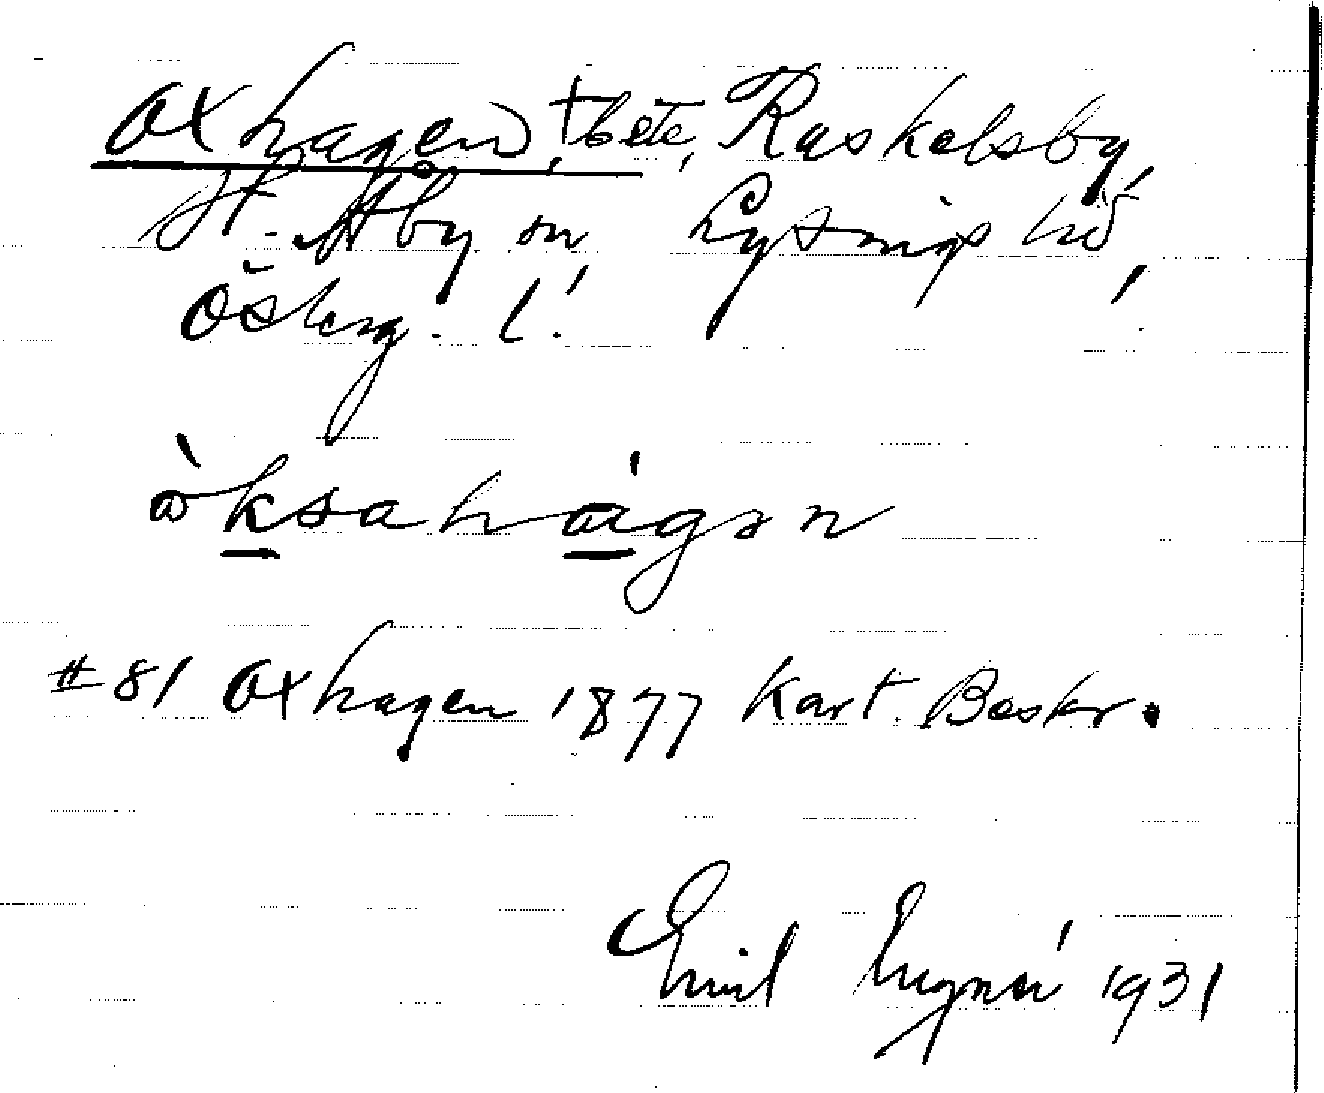 Oxhagen, †bete, Raskelsby,
St. Åby sn Lysings hd,
Österg. l.
òksahágən
# 81 Oxhagen 1877 Kart. Beskr.
Emil 1931